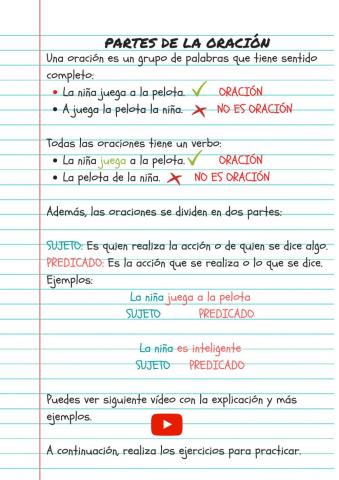 PARTES DE LA ORACIÓN
Una oración es un grupo de palabras que tiene sentido
completo:
• La niña juega a la pelota. ORACIÓN
• A juega la pelota la niña. NO ES ORACIÓN
Todas las oraciones tiene un verbo:
• La niña juega a la pelota. ORACIÓN
• La pelota de la niña. NO ES ORACIÓN
Además, las oraciones se dividen en dos partes:
SUJETO: Es quien realiza la acción o de quien se dice algo.
PREDICADO: Es la acción que se realiza o lo que se dice.
Ejemplos:
La niña juega a la pelota
SUJETO PREDICADO
La niña es inteligente
SUJETO PREDICADO
Puedes ver siguiente vídeo con la explicación y más
ejemplos.
A continuación, realiza los ejercicios para practicar.